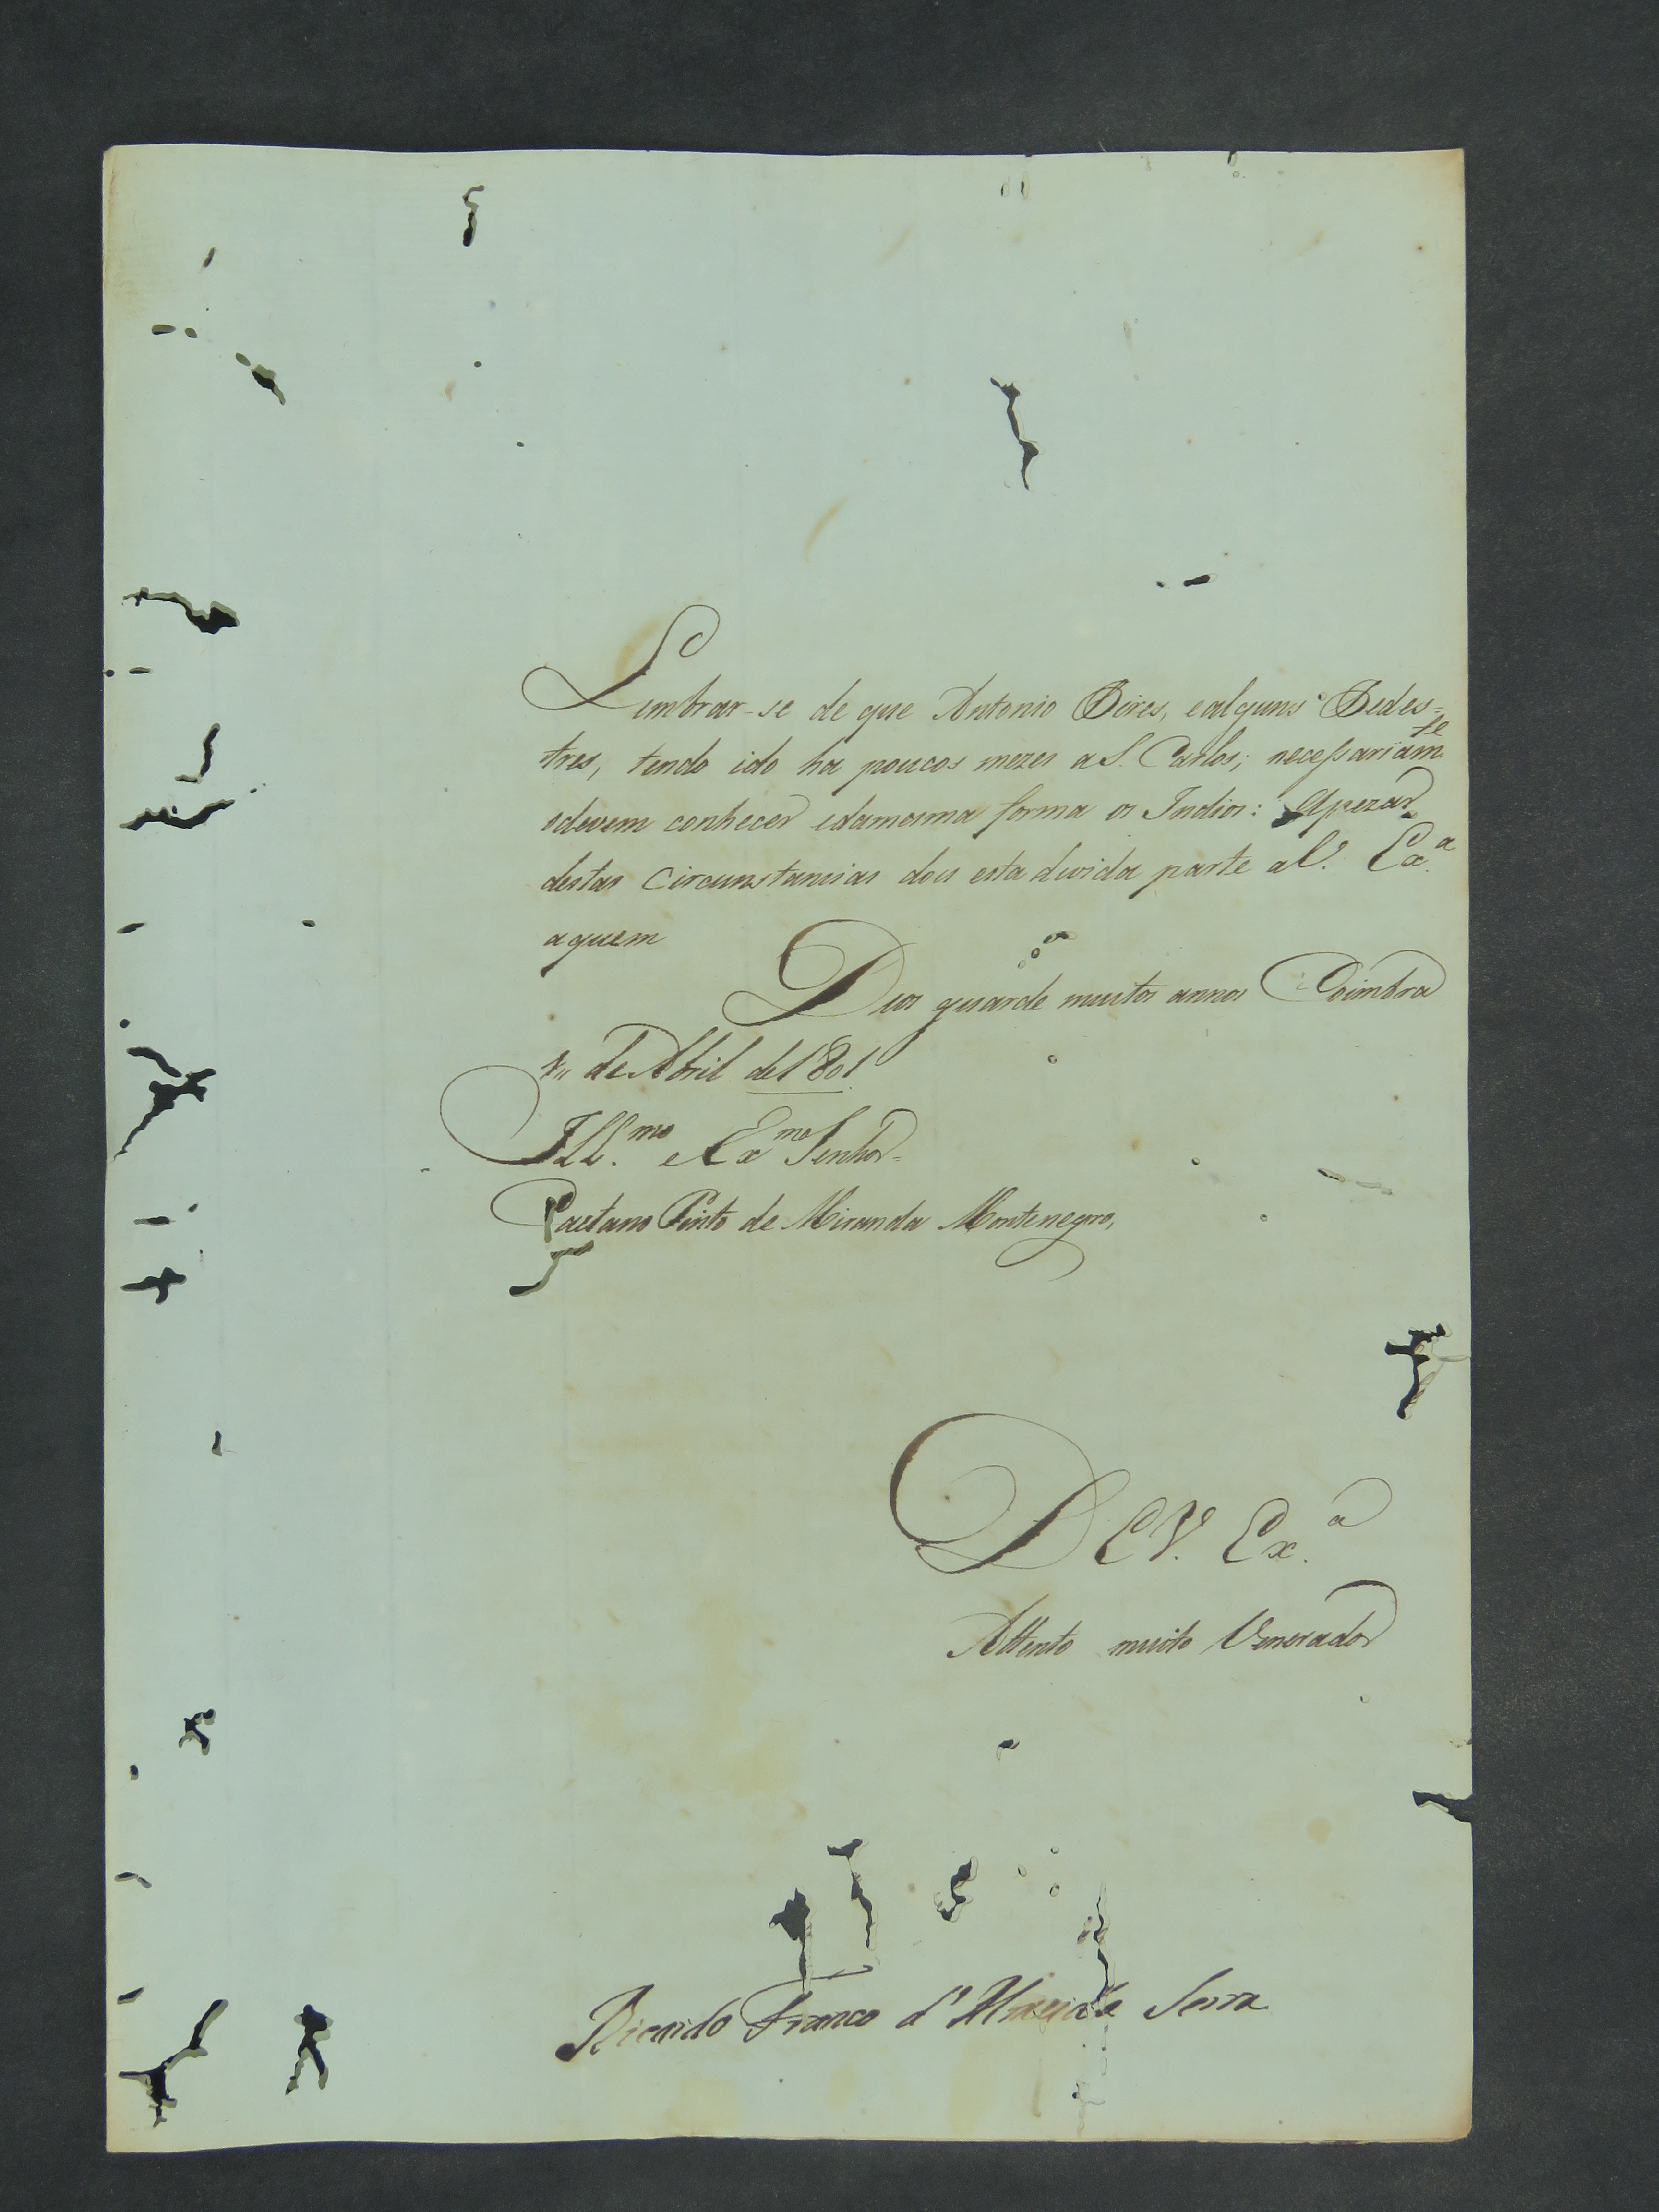 Lembrar-se de que Antonio Pires, e alguns Pedes=
tres, tendo ido ha poucos mezes a S. Carlos; necessariam.te
o devem conhecer e da mesma forma os Indios: Apezar
destas circunstancias dou esta divida parte a V. Ex.a
a quem
Deos guarde muitos annos Coimbra
de Abril de 1801
Ill.mo e Ex.mo Senhor=
Caetano Pinto de Miranda Montenegro,
DE V. Ex.a
Attento muito Venerador
Ricardo Franco d'Almeida Serra